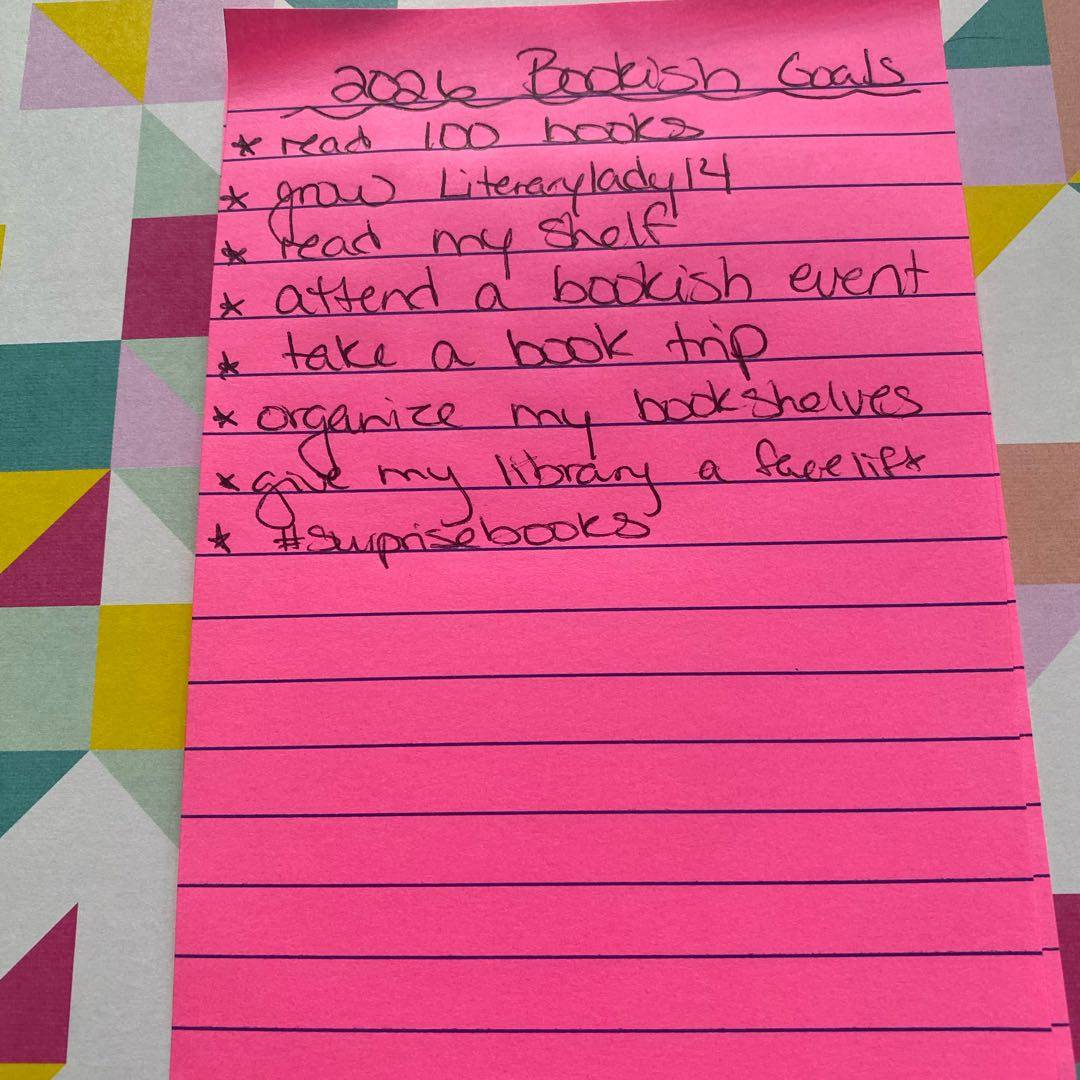 2026 Bookish Goals
* read 100 books
* grow Literarylady14
* read my shelf
* attend a bookish event
* take a book trip
* organize my bookshelves
* give my library a facelift
* #surprisebooks